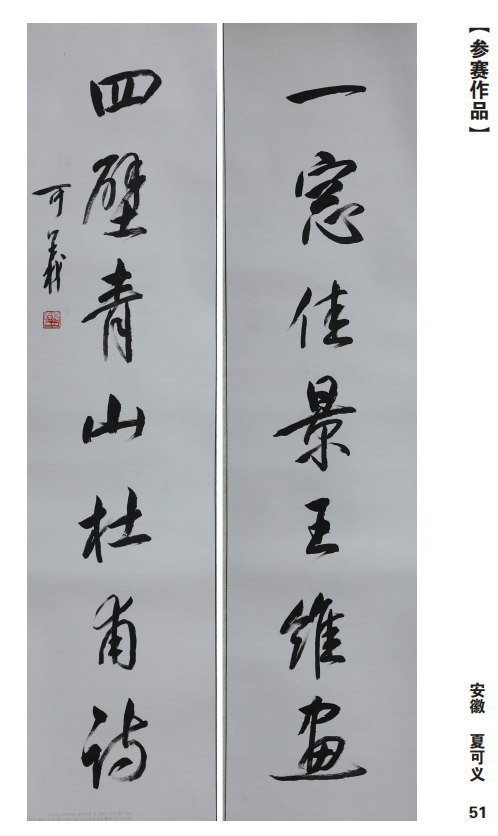 【参赛作品】
一窓佳景王維畫
四壁青山杜甫詩
可義
安徽 夏可义
51